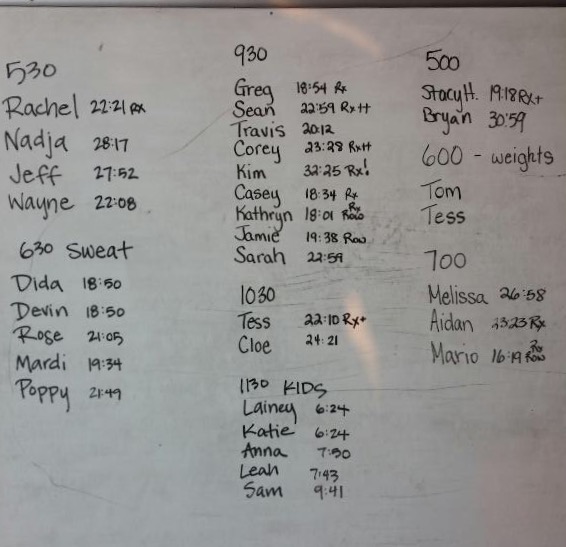 530
Rachel 22:21 Rx
Nadja 28:17
Jeff 27:52
Wayne 22:08
630 Sweat
Dida 18:50
Devin 18:50
Rose 21:05
Mardi 19:34
Poppy 21:49
930
Greg 18:54 Rx
Sean 22:59 Rx++
Travis 20:12
Corey 23:28 Rx++
Kim 32:25 Rx!
Casey 18:34 Rx
Kathryn 18:01 Rx Row
Jamie 19:38 Row
Sarah 22:59
1030
Tess 22:10 Rx+
Cloe 24:21
1130 KIDS
Lainey 6:24
Katie 6:24
Anna 7:50
Leah 7:43
Sam 9:41
500
Stacy H. 19:18 Rx+
Bryan 30:59
600 - weights
Tom
Tess
700
Melissa 26:58
Aidan 23:23 Rx
Mario 16:19 Rx Row